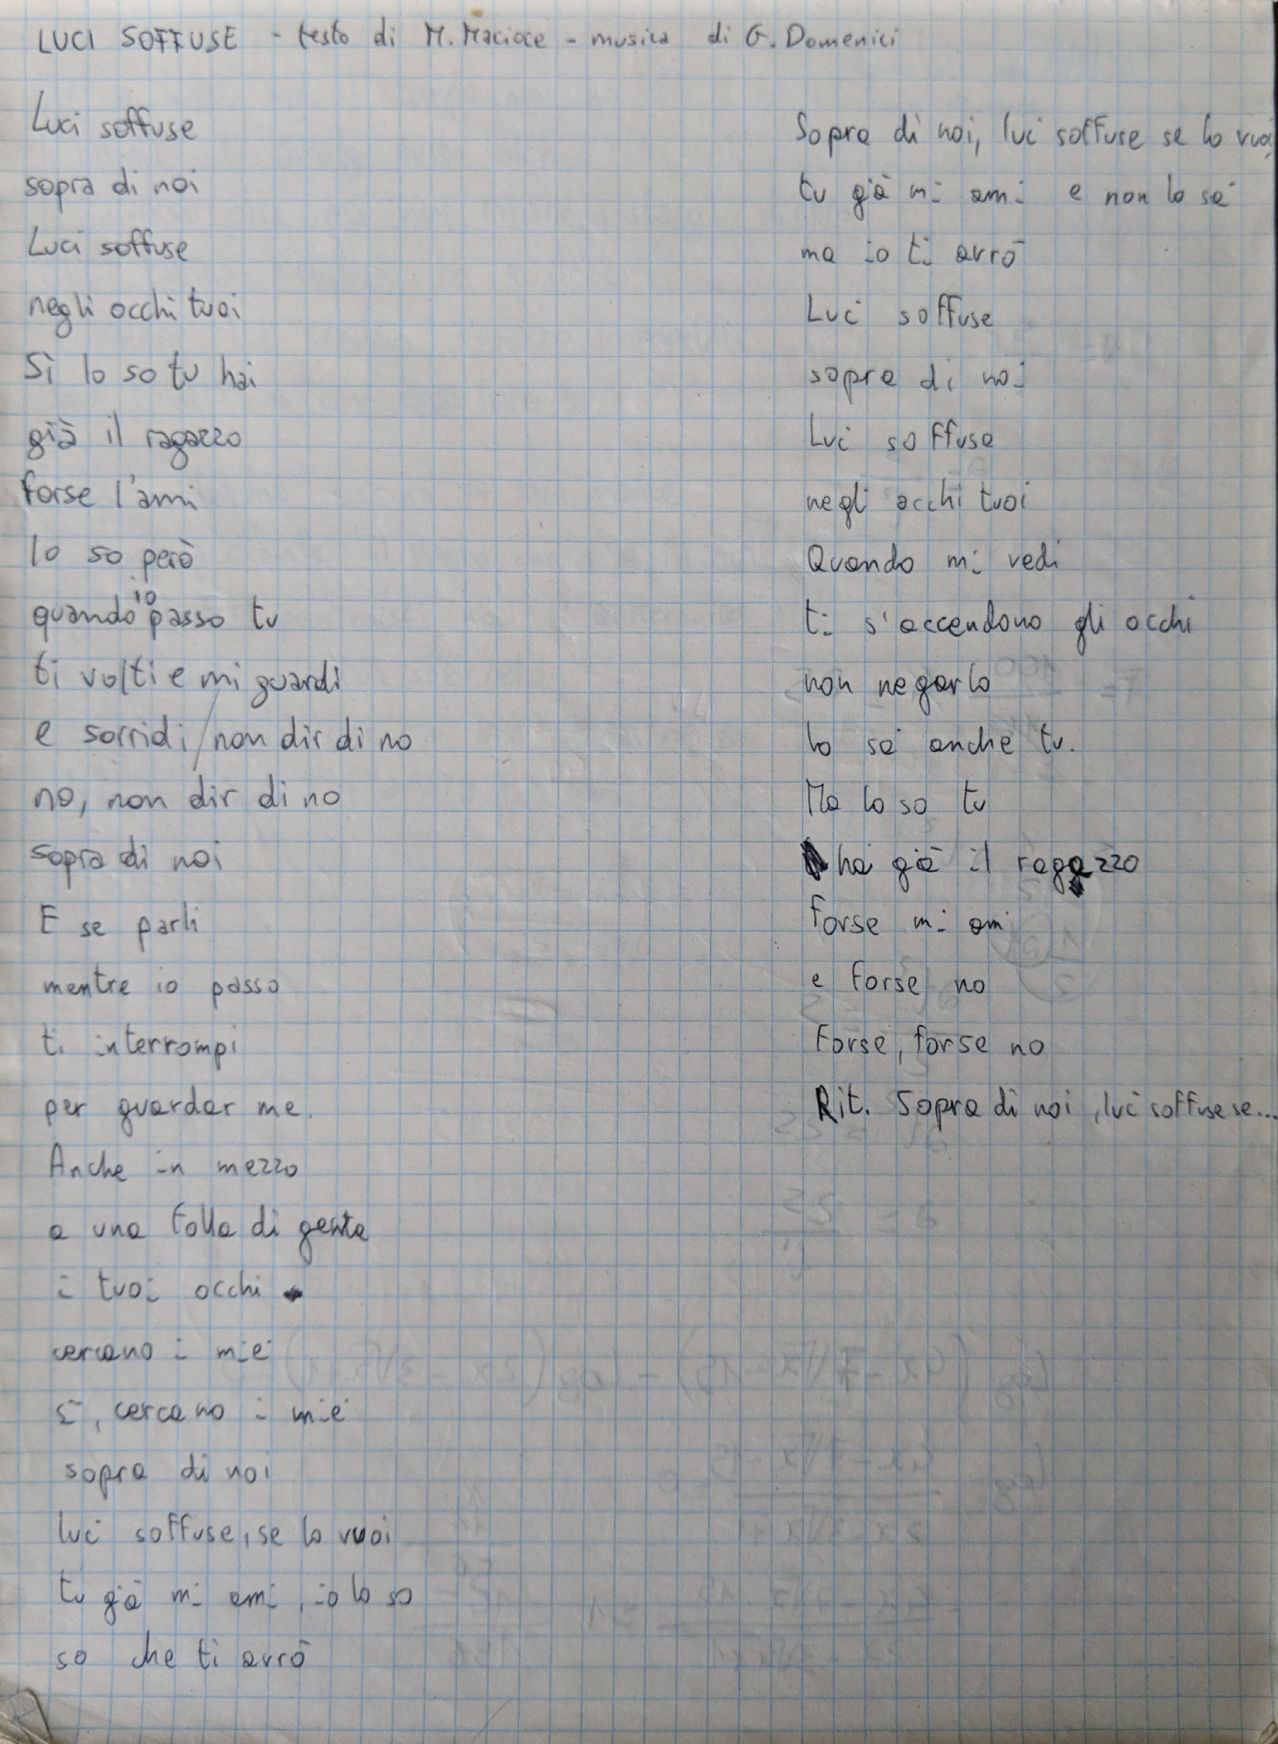 LUCI SOFFUSE - testo di M. Macioce - musica di G. Domenici
Luci soffuse
sopra di noi
Luci soffuse
negli occhi tuoi
Sì lo so tu hai
già il ragazzo
forse l'ami
lo so però
quando io passo tu
ti volti e mi guardi
e sorridi / non dir di no
no, non dir di no
sopra di noi
E se parli
mentre io passo
ti interrompi
per guardar me.
Anche in mezzo
a una folla di gente
i tuoi occhi
cercano i miei
sì, cercano i miei
sopra di noi
luci soffuse, se lo vuoi
tu già mi ami, io lo so
so che ti avrò
Sopra di noi, luci soffuse se lo vuoi
tu già mi ami e non lo sai
ma io ti avrò
Luci soffuse
sopra di noi
Luci soffuse
negli occhi tuoi
Quando mi vedi
ti s'accendono gli occhi
non negarlo
lo sai anche tu.
Ma lo so tu
hai già il ragazzo
forse mi ami
e forse no
Forse, forse no
Rit. Sopra di noi, luci soffuse se...